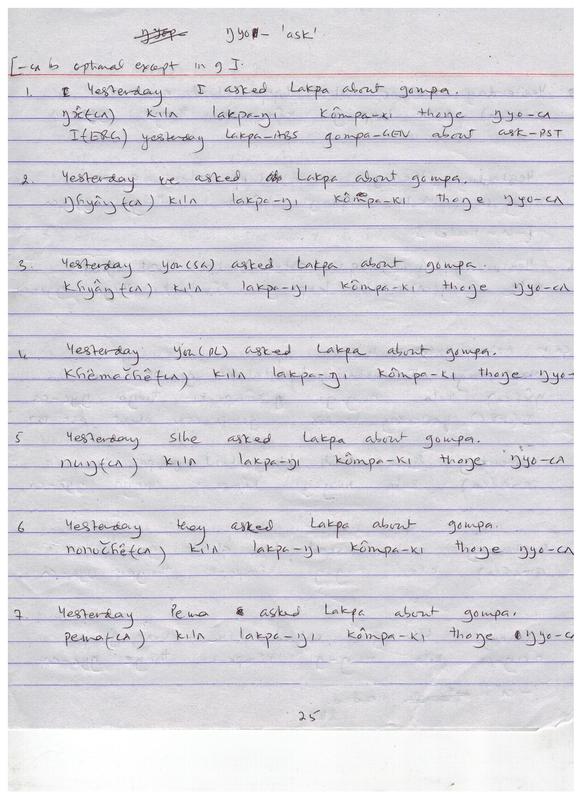 ŋyo- 'ask'
[-cʌ is optional except in 9 I.
1. Yesterday I asked Lakpa about gompa.
kiln lakpa-ŋı kômpa-kı thoŋe ŋyo-cʌ
I(ERG) yesterday Lakpa-ABS gompa-GEN about ask-PST
2. Yesterday we asked Lakpa about gompa.
kiln lakpa-ŋı kômpa-kı thoŋe ŋyo-cʌ
3. Yesterday you(SG) asked Lakpa about gompa.
khyâŋ(cʌ) kiln lakpa-ŋı kômpa-kı thoŋe ŋyo-cʌ
4. Yesterday you(PL) asked Lakpa about gompa.
khêmačhê(cʌ) kiln lakpa-ŋı kômpa-kı thoŋe ŋyo-
5 Yesterday s/he asked Lakpa about gompa.
nuŋ(cʌ) kiln lakpa-ŋı kômpa-kı thoŋe ŋyo-cʌ
6 Yesterday they asked Lakpa about gompa.
nonučhê(cʌ) kiln lakpa-ŋı kômpa-kı thoŋe ŋyo-cʌ
7. Yesterday Pema asked Lakpa about gompa.
pema(cʌ) kiln lakpa-ŋı kômpa-kı thoŋe ŋyo-c
25